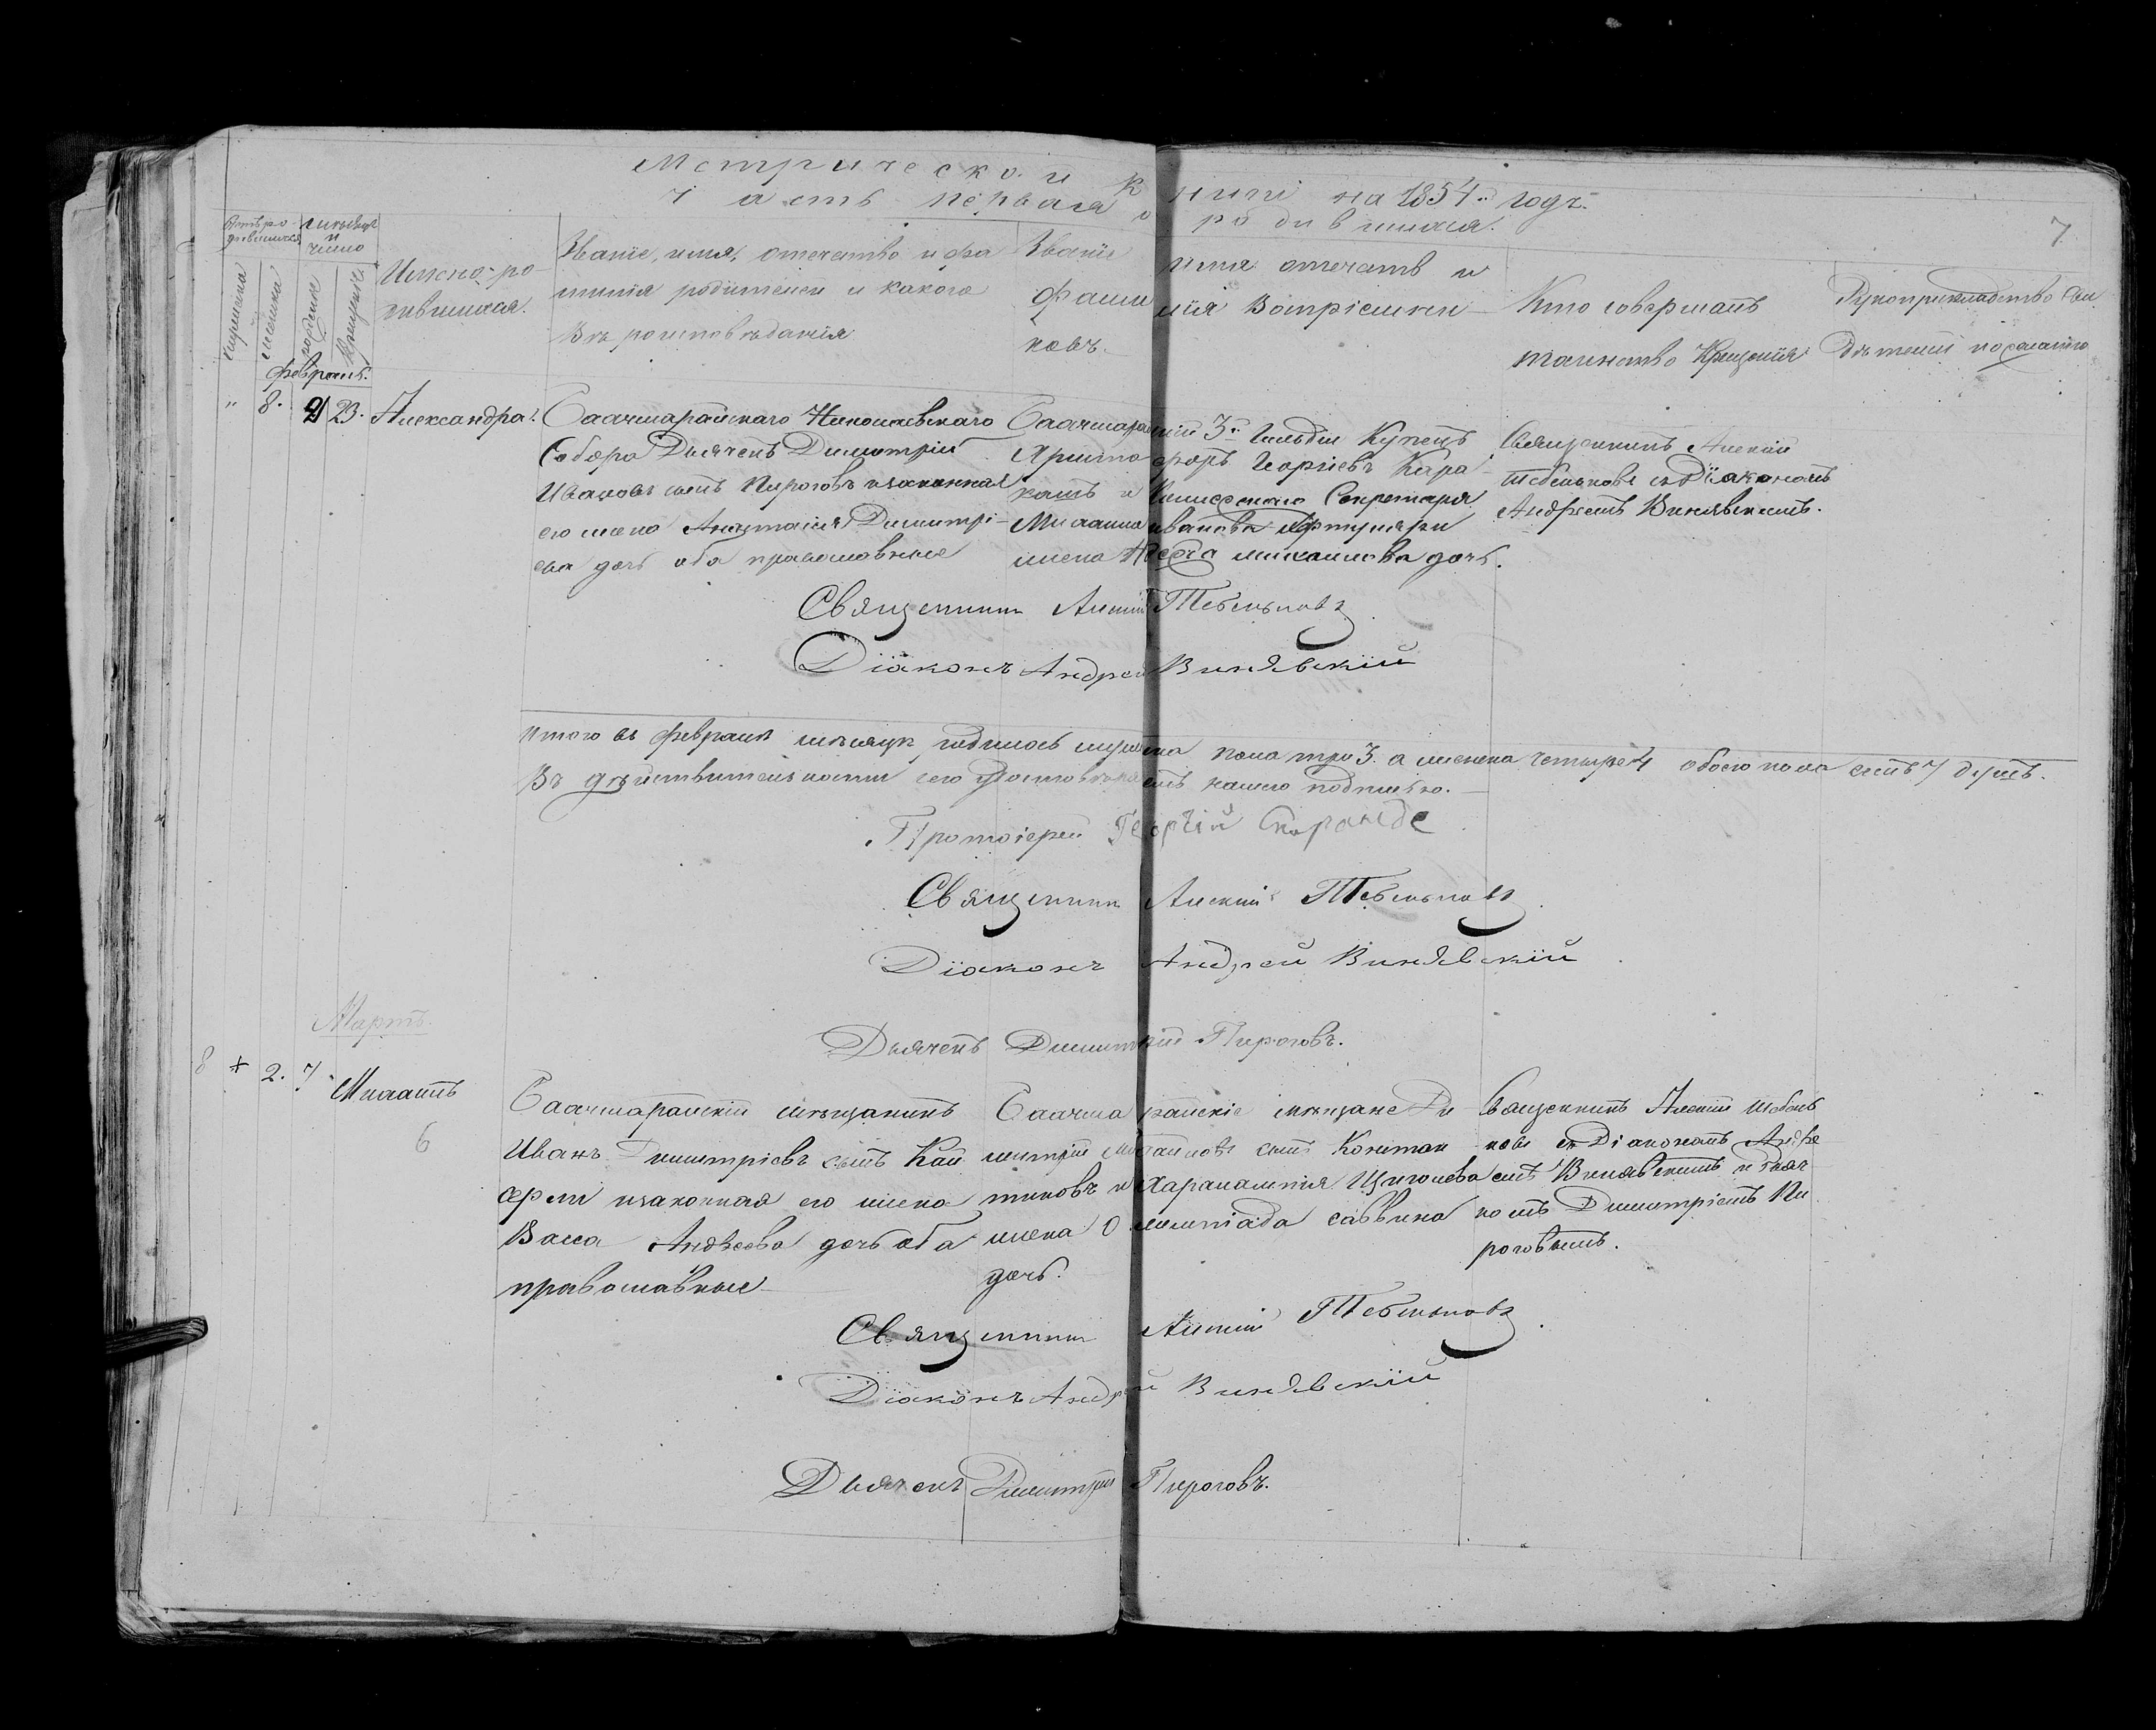 Метрической книги на 1854й годъ.
часть первая о родившихся.
7
Счетъ родившихся
мѣсяцъ и число
мужеска
женска
рожденія
крещенія
Имена родившихся.
Званіе, имя, отечество и фамилія родителей и какого вѣроисповѣданія
Званіе имя отечество и фамилія воспріемниковъ.
Кто совершалъ таинство крещенія
Рукоприкладство свидѣтелей по желанію
Февраль.
" 8. 9 23. Александра.
Бахчисарайскаго Николаевскаго
Собора Дьячекъ Димитрій
Ивановъ сынъ Пироговъ и законная
его жена Анастасія Димитріева дочь оба православные
Бахчисарайскій 3й Гильдіи Купецъ
Христофоръ Георгіевъ Кара
и Коллежскаго Секретаря
Михаила Иванова
жена михаилова дочь.
Священникъ Алексій
Тебеньковъ съ Діакономъ
Андреемъ Винявскимъ.
Священникъ Алексій Тебеньковъ
Діаконъ Андрей Винявскій
Итого въ февралѣ мѣсяцѣ родилось мужеска пола три 3. а женска четыре 4 обоего пола семь 7 душъ.
Въ дѣйствительности сего нашею подписью.
Протоіерей Георгій Спиранде
Священникъ Алексій Тебеньковъ
Діаконъ Андрей Винявскій
Дьячекъ Димитрій Пироговъ.
Мартъ.
8 2. 7 Михаилъ
6
Бахчисарайскій мѣщанинъ
Иванъ Димитріевъ сынъ
и законная его жена
Васса Андреева дочь оба
православные
Бахчисарайскіе мѣщане Ди
митрій Михайловъ сынъ Констан
тиновъ и Харалампія
жена Олимпіада саввина
дочь.
Священникъ Алексій Тебень
ковъ съ Діакономъ Андре
Винявскимъ и Дьяч
комъ Димитріемъ Пи
роговымъ.
Священникъ Алексій Тебеньковъ
Діаконъ Андрей Винявскій
Дьячекъ Димитрій Пироговъ.